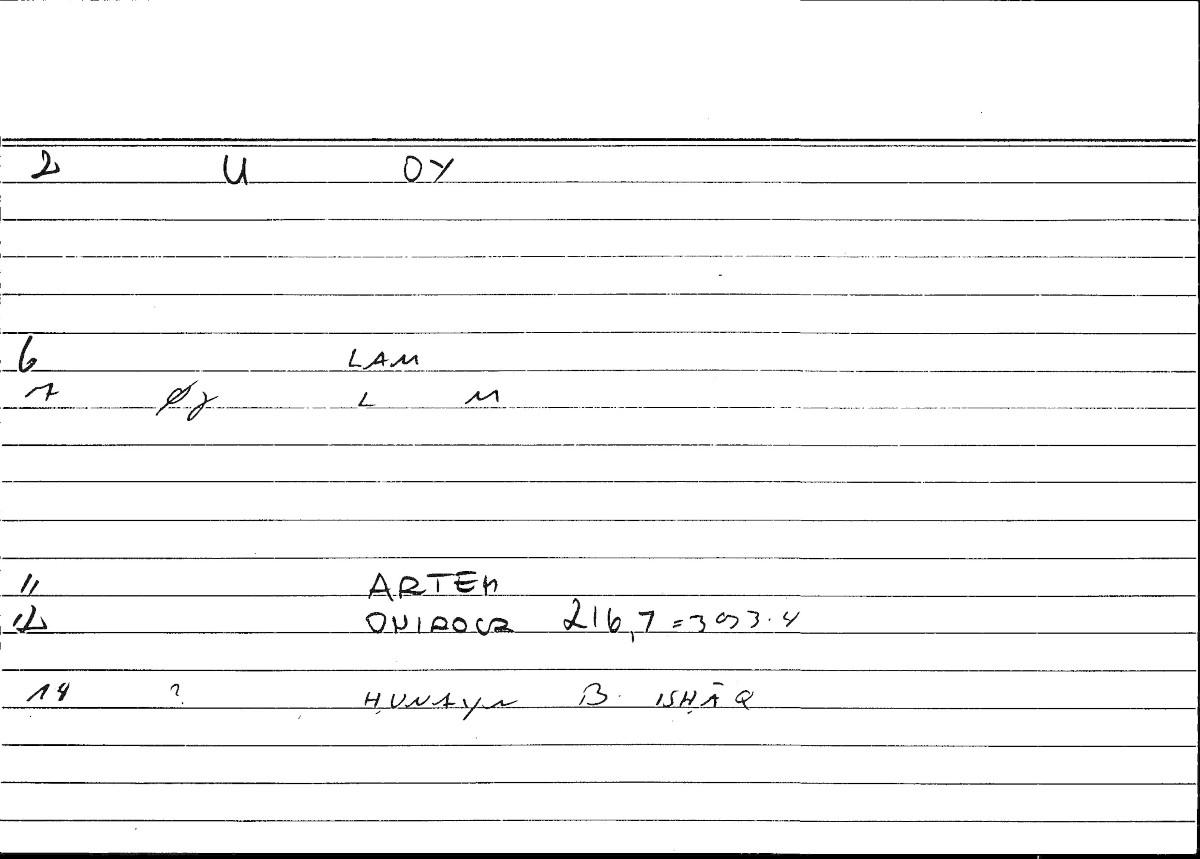 2 U OY
6 LAM
7 L M
11 ARTEM
12 ONIROCR 216,7 = 393.4
14 ? ḤUNAYN B. ISḤĀQ